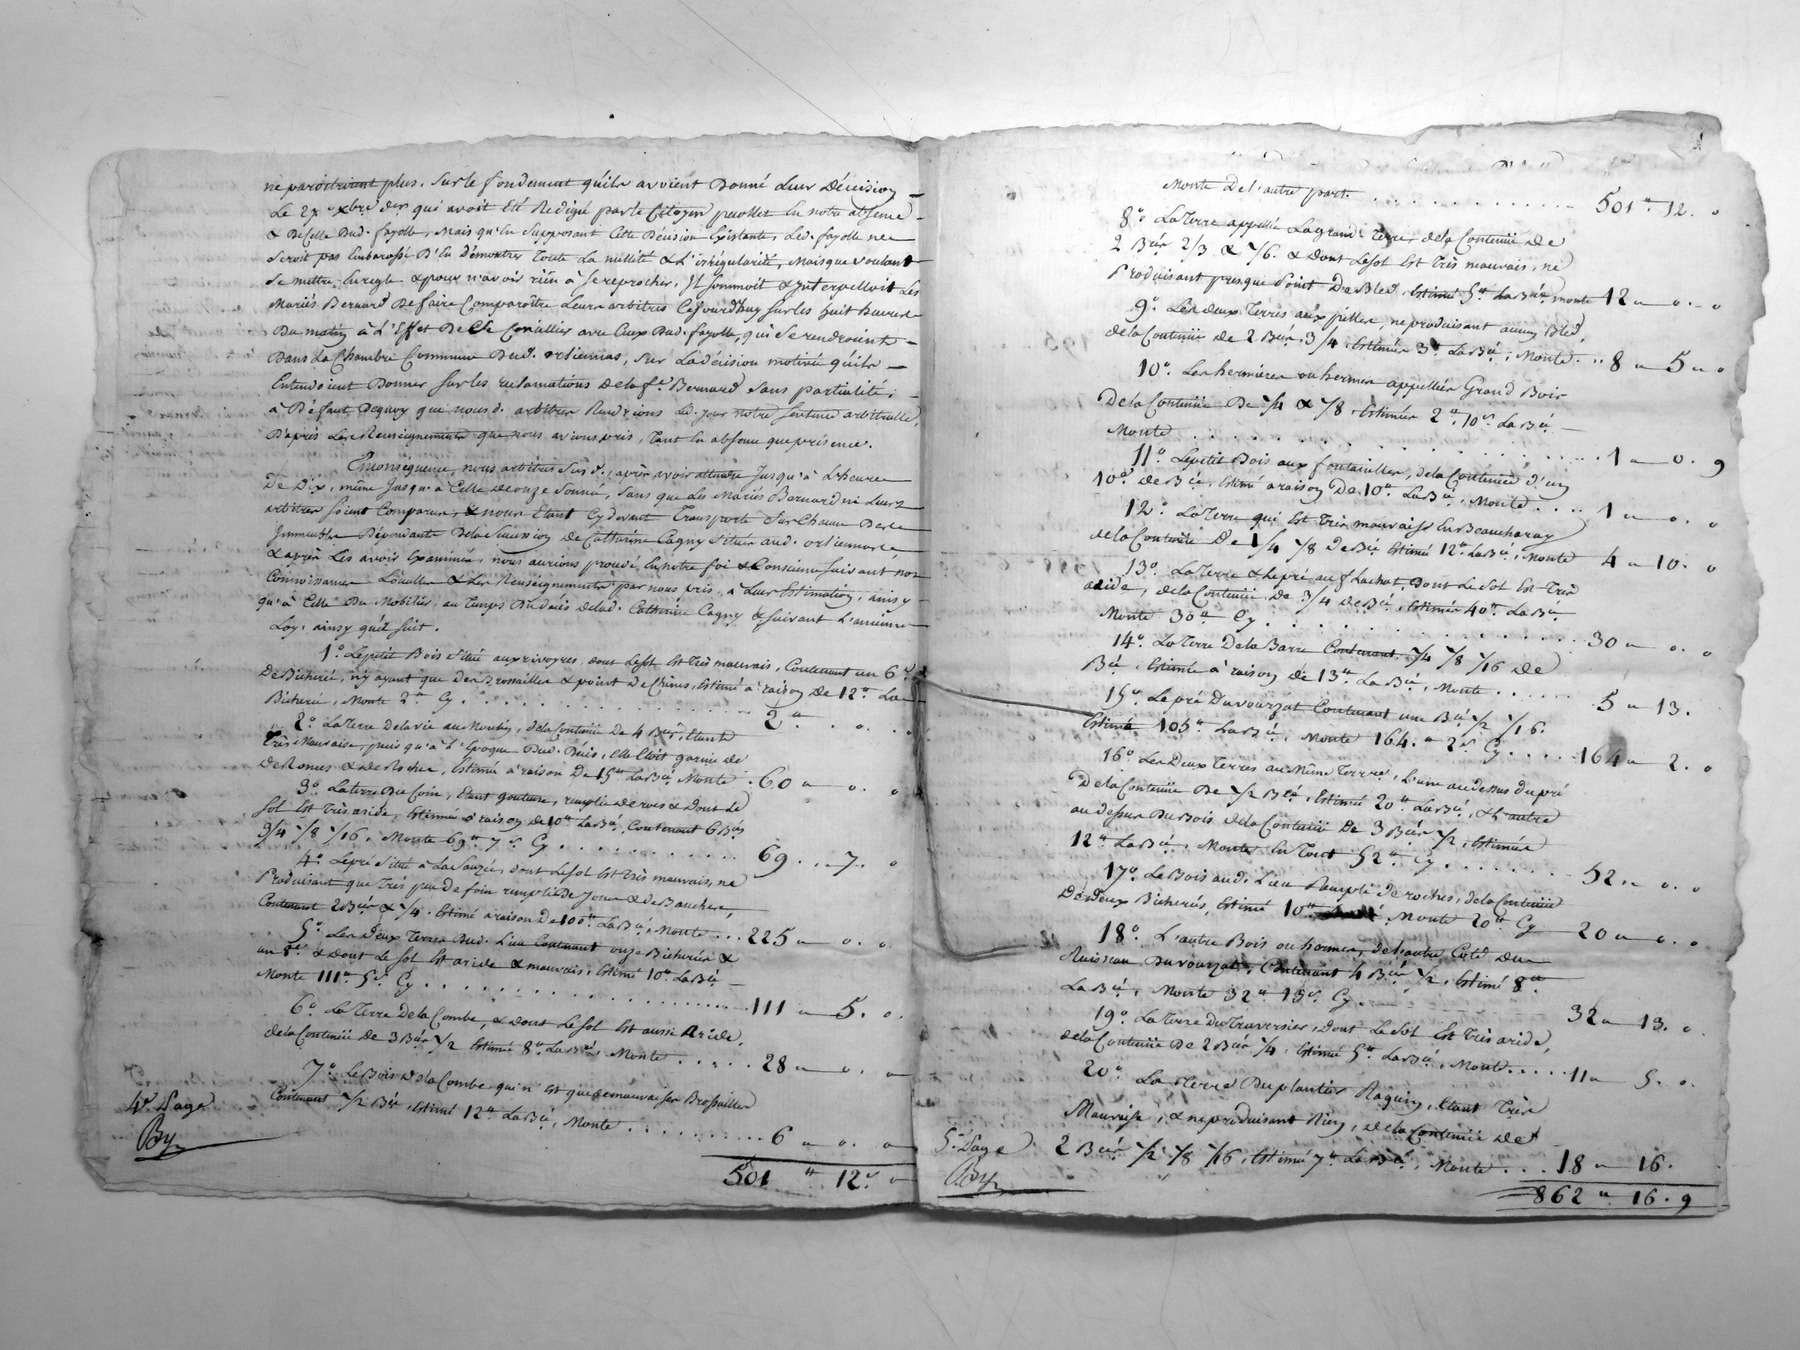 ne paroîtroient plus. Sur le fondement qu'ils avoient Donné Leur Décision
Le 27 xbre der qui avoit Eté Redigé par le Citoyen en notre absence
& De Celle Dud. fayolle, Mais qu'En Supposant Cette Décision Existante, Led. fayolle ne
Seroit pas Embarassé D'En Démontrer Toute La nullité & L'irrégularité, Mais que voulant
Se mettre En regle & pour n'avoir rien à Se reprocher, Il Sommoit & Interpelloit Les
Mariés Bernard De faire Comparoître Leurs arbitres Cejourd'huy sur les huit heures
Du matin à L'Effet De Se Concillier avec Ceux Dud. fayolle, qui Se rendroient
Dans La Chambre Commune Dud. orliennas, Sur La décision motivé qu'ils
Entendoient Donner Sur les reclamations De la fe. Bernard Sans partialité ;
à Défaut Dequoy que nous d. arbitres Rendrions Led. jour notre Sentence arbitralle,
D'après Les Renseignements que nous avions pris, Tant En absence que présence.
En Conséquence, nous arbitres Susd. après avoir attendu Jusqu'à L'heure
De Dix, même Jusqu'à Celle De onze Sonné, Sans que Les Mariés Bernard ni Leurs
arbitres Soient Comparus, & nous Etant Cy devant Transporté Sur Chacun Des
Immeubles Dépendants De la Succession De Catherine Cagny Situés aud. orliennas,
& après Les avoir Examinés, nous aurions procédé En notre foi & Conscience Suivant nos
Connoissances Locales & Les Renseignements par nous pris, à Leur Estimation, ainsy
qu'à Celle Du Mobilier, au Temps Du Déces de lad. Catherine Cagny & Suivant L'ancienne
Loy, ainsy qu'il Suit.
1°. Le petit Bois Situé aux rivoyres, dont Le Sol Est Très mauvais, Contenant un 6e
De Bicherée, n'y ayant que Des Brossailles & point De Chênes, Estimé à raison De 12lt La
Bicherée, Monte 2lt Cy . . . . . . . . . . . 2lt . o . o
2°. La Terre De la vie au Moulin, de la Contenüe De 4 Bées, Etant
Très Mauvaise, puis qu'à L'Epoque Dud. Décès, Elle Etoit garnie de
De Ronces & de Rocher, Estimé à raison De 15lt La Bée Monte . 60 " o . o
3°. La terre Du Coin, Etant goutteuse, remplie De & Dont Le
Sol Est Très aride, Estimée à raison de 10lt La Bée, Contenant 6 Bées
3/4 1/8 1/16, Monte 69lt 7s. Cy . . . . . . . . . 69 . . 7 . o
4°. Le pré Situé à La Sauzée, dont Le Sol Est Très mauvais, ne
Produisant que Très peu De foin rempli De Joncs & de Bauches,
Contenant 2 Bées & 1/4. Estimé à raison De 100lt La Bée, Monte . . . 225 " o . o
5°. Les Deux Terres Dud. Lieu Contenant onze Bicherées &
un 8e. & Dont Le Sol Est aride & mauvais, Estimé 10lt La Bée
Monte 111lt 5s. Cy . . . . . . . . . . . 111 " 5 . o
6°. La Terre De la Combe, & Dont Le Sol Est aussi Aride,
de la Contenüe De 3 Bées 1/2 Estimé 8lt La Bée, Monte . . . . . 28 " o . o
7°. Le Bois De la Combe qui n'Est que de mauvaises Brossailles
Contenant 1/2 Bée, Estimé 12lt La Bée, Monte . . . . . . . . 6 " o . o
4e. Page
By
501 lt 12s o
Monte De L'autre part . . . . . . . . . . 501lt 12 . o
8°. La Terre appellée La grande Terre, de la Contenüe De
2 Bées 2/3 & 1/6. & Dont Le Sol Est Très mauvais, ne
Produisant presque Point De Bled, Estimé 5lt La Bée, monte 12 " o . o
9°. Les deux Terres aux pilles, ne produisant aucun Bled,
de la Contenüe de 2 Bées 3/4, Estimées 3lt La Bée, Monte . . 8 " 5 " o
10°. Les hermières ou hermes appellées Grand Bois
De la Contenüe De 1/4 & 1/8, Estimées 2lt 10s La Bée
Monte . . . . . . . . . . . . 1 " 0 . 9
11°. Le petit Bois aux fontanilles, de la Contenüe d'un
10e. De Bée, Estimé à raison De 10lt La Bée, Monte . . . . 1 " o . o
12°. La Terre qui Est Très mauvaise En Beaucharay
de la Contenüe De 1/4 1/8 De Bée Estimé 12lt La Bée, Monte 4 " 10 . o
13°. La Terre & Le pré au flachat, Dont Le Sol Est Très
aride, de la Contenüe De 3/4 De Bée, Estimés 40lt La Bée
Monte 30lt Cy . . . . . . . . . . 30 " o . o
14°. La Terre De la Barre Contenant 1/4 1/8 1/16 De
Bée, Estimée à raison de 13lt La Bée, Monte . . . . . . 5 " 13 .
15°. Le pré Du vourzat Contenant une Bée 1/2 1/16.
Estimé 105lt La Bée, Monte 164. lt 2s Cy . . . . 164 " 2 . o
16°. Les Deux Terres au Même Terroir, L'une au dessus du pré
De la Contenüe De 1/2 Bée, Estimée 20lt La Bée, & L'autre
au dessus Du Bois, de la Contenüe De 3 Bées 1/2, Estimée
12lt La Bée, Monte En Tout 52lt Cy . . . . . . . 52 . . o . o
17°. Le Bois aud. Lieu Rempli De roches, de la Contenüe
De deux Bicherées, Estimé 10lt Monte 20lt Cy 20 " o . o
18°. L'autre Bois ou hermes, de L'autre Coté Du
Ruisseau Du vourzat, Contenant 4 Bées 1/2, Estimé 8lt
La Bée, Monte 32lt 13s Cy. 32 " 13 . o
19°. La Terre Du Traversier, Dont Le Sol Est Très aride,
de la Contenüe De 2 Bées 1/4, Estimé 5lt La Bée, Monte . . . . . 11 " 5 . o .
20°. La Terre Du plantier Raquin, Etant Très
Mauvaise, & ne produisant Rien, de la Contenüe De
2 Bées 1/2 1/8 1/16, Estimée 7lt La Bée, Monte . . . 18 " 16 .
5e. Page
By
862 " 16 . 9